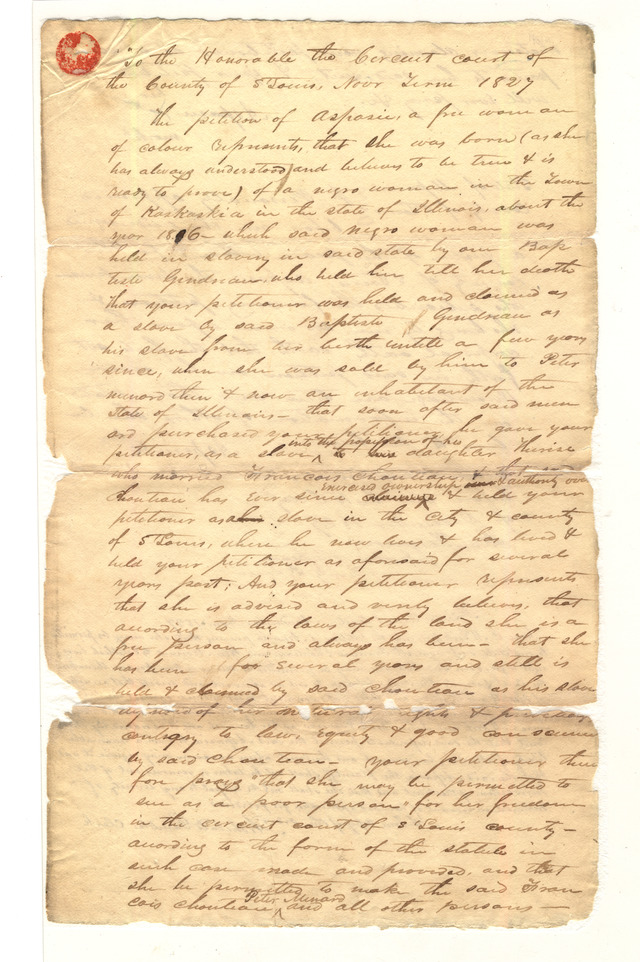 To the Honorable the Circuit court of
the County of St Louis, Novr Term 1827
The petition of Aspasia, a free woman
of colour Represents, that she was born (as she
has always understood and believes to be true & is
ready to prove) of a negro woman, in the Town
of Kaskaskia in the state of Illinois, about the
year 1806 - which said negro woman was
held in slavery in said state by one Bap
tiste Gendreau, who held her till her death
that your petitioner was held and claimed as
a slave by said Baptiste Gendreau as
his slave from her birth untill a few years
since, when she was sold by him to Peter
menard then & now an inhabitant of the
State of Illinois - that soon after said men
ard purchased your petitioner, he gave your
into the possession of his
petitioner, as a slave to daughter Therise
who married Francois Chouteau, & that said
Exercised ownership & authority over
Chouteau has ever since & held your
petitioner as slave in the city & county
of St Louis, where he now lives & has lived &
held your petitioner as aforesaid for several
years past; And your petitioner represents
that she is advised and verily believes, that
according to the laws of the land she is a
free person and always has been - that she
has been for several years and still is
held & claimed by said Chouteau as his slave
of her natural rights & privileges
contrary to law, Equity & good conscience
by said Chouteau - your petitioner there
fore prays that she may be permitted to
sue as a poor person for her freedom
in the circuit court of St Louis county -
according to the form of the statute in
such case made and provided, and that
she be permitted to make the said Fran
Peter Menard
cois Chouteau and all other persons -